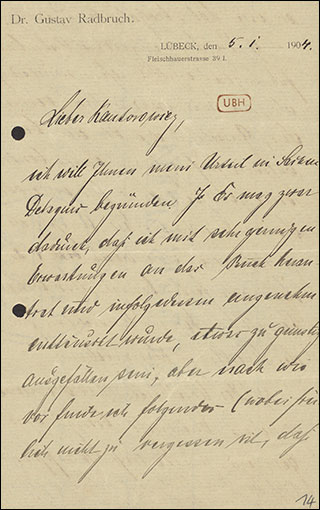 Dr. Gustav Radbruch.
LÜBECK, den 5. I. 1904.
Fleischhauerstrasse 39 I.
UBH
Lieber Kantorowicz,
ich will Ihnen mein Urteil in
begründen. Es mag zwar
dadurch, daß ich mit sehr geringen
Erwartungen an das Buch heran-
trat und infolgedessen angenehm
enttäuscht wurde, etwas zu günstig
ausgefallen sein, aber nach wie
vor finde ich folgendes (wobei frei-
lich nicht zu vergessen ist, daß
14